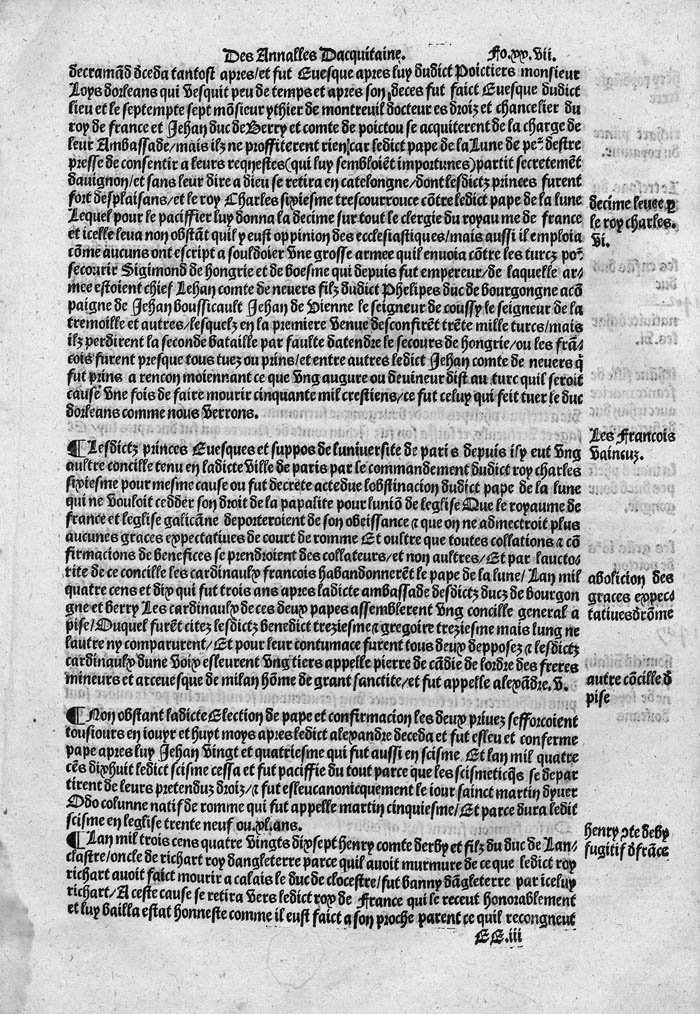 Des Annalles Dacquitaine. Fo.xx.vii.
decramãd dceda tantost apres/et fut Euesque apres luy dudict Poictiers monsieur
Loys dorleans qui vesquit peu de temps et apres son deces fut faict Euesque dudict
lieu et le septempte sept mõsieur ythier de montreuil docteur es droiz et chancelier du
roy de france et Jehan duc de Berry et comte de poictou se acquiterent de la charge de
leur Ambassade/mais ilz ne proffiterent rien/car ledict pape de la Lune de pe² destre
presse de consentir a leurs reqnestes (qui luy sembloiẽt importunes) partit secretemẽt
dauignon/et sans leur dire a dieu se retira en catelongne/dont lesdictz princes furent
fort desplaisans/et le roy Charles sixiesme trescourrouce cõtre ledict pape de la lune
Lequel pour le paciffier luy donna la decime sur tout le clergie du royaume de france
et icelle leua non obstãt quil y eust oppinion des ecclesiastiques/mais aussi il emploia
cõme aucuns ont escript a souldoier vne grosse armee quil enuoia cõtre les turcz po²
secourir Sigimond de hongrie et de boesme qui depuis fut empereur/de laquelle ar/
mee estoient chief Lehan comte de neuers filz dudict Phelipes duc de bourgongne acõ
paigne de Jehan boussicault Jehan de Vienne le seigneur de coussy le seigneur de la
tremoille et autres/lesquelz en la premiere venue desconfirẽt trẽte mille turcs/mais
ilz perdirent la seconde bataille par faulte datendre le secours de hongrie/ou les frã/
cois furent presque tous tuez ou prins/et entre autres ledict Jehan comte de neuers q̃
fut prins a rencon moiennant ce que vng augure ou deuineur dist au turc quil seroit
cause vne fois de faire mourir cinquante mil crestiens/ce fut celuy qui feit tuer le duc
dorleans comme nous verrons.
decime leuee p̱
le roy charles.
vi.
¶Lesdictz princes Euesques et suppos de luniuersite de paris depuis ilx eut vng
aultre concille tenu en ladicte ville de paris par le commandement dudict roy charles
sixiesme pour mesme cause ou fut decrete actedue lobstinacion dudict pape de la lune
qui ne vouloit cedder son droit de la papalite pour luniõ de leglise Que le royaume de
france et leglise galicãne deporteroient de son obeissance ⁊ que on ne admectroit plus
aucunes graces expectatiues de court de romme Et oultre que toutes collations ⁊ cõ
firmacions de benefices se prendroient des collateurs/et non aultres/Et par laucto/
rite de ce concille les cardinaulx francois habandonnerẽt le pape de la lune/Lan mil
quatre cens et dix qui fut trois ans apres ladicte ambassade desdictz ducz de bourgon
gne et berry Les cardinaulx de ces deux papes assemblerent vng concille general a
pise/Ouquel furẽt citez lesdictz benedict treziesme⁊ gregoire treziesme mais lung ne
lautre ny comparurent/Et pour leur contumace furent tous deux depposez ⁊ lesdictz
cardinaulx dune voix esleurent vng tiers appelle pierre de cãdie de lordre des freres
mineurs et arceuesque de milan hõme de grant sanctite/et fut appelle alexãdre.v.
Les Francois
vaincuz.
abolicion des
graces expec/
tatiues drõme
autre cõcille d
pise
¶Non obstant ladicte Election de pape et confirmacion les deux priuez sefforcoient
tousiours en iouyr et huyt moys apres ledict alexandre deceda et fut esleu et conferme
pape apres luy Jehan vingt et quatriesme qui fut aussi en scisme Et lan mil quatre
cẽs dixhuit ledict scisme cessa et fut paciffie du tout parce que les scismeticq̃s se depar
tirent de leurs pretenduz droiz/⁊ fut esleucanonicquement le iour sainct martin dyuer
Odo columne natif de romme qui fut appelle martin cinquiesme/Et parce dura ledit
scisme en leglise trente neuf ou.xl.ans.
¶Lan mil trois cens quatre vingts dixsept henry comte derby et filz du duc de Lan/
clastre/oncle de richart roy dangleterre parce quil auoit murmure de ce que ledict roy
richart auoit faict mourir a calais le duc de clocestre/fut banny dãgleterre par iceluy
richart/A ceste cause se retira vers ledict roy de France qui le receut honorablement
et luy bailla estat honneste comme il eust faict a son proche parent ce quil recongneut
henry ↄte deby
fugitif d frãce
EE.iii